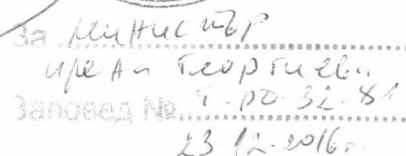 За Министър
Ирена Георгиева
Заповед № Т-РД-32-81
23.12.2016г.